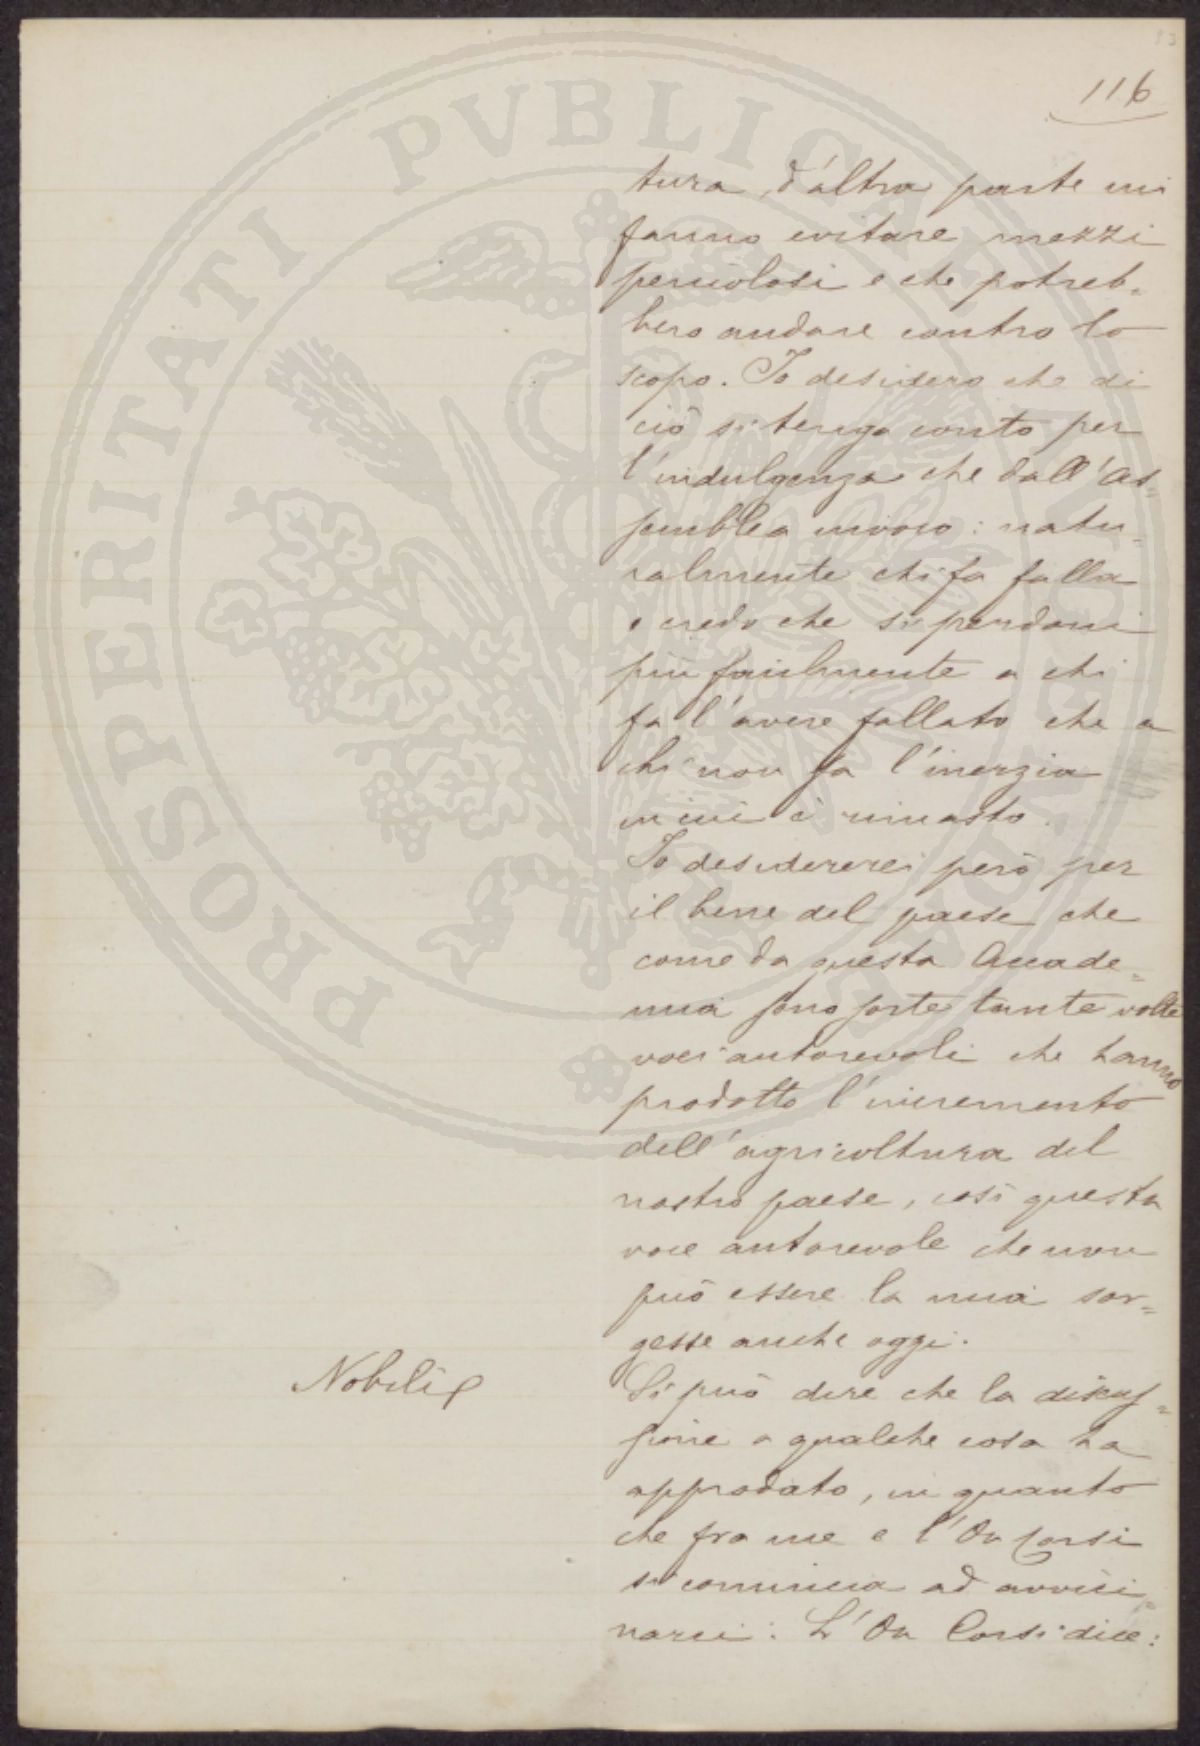 116
tura, d'altra parte mi
fanno evitare mezzi
pericolosi e che potreb=
bero andare contro lo
scopo. Io desidero che di
ciò si tenga conto per
l'indulgenza che dall'As=
semblea invoco: natu=
ralmente chi fa falla
e credo che si perdoni
più facilmente a chi
fa l'avere fallato che a
chi non fa l'inerzia
in cui è rimasto.
Io desidererei però per
il bene del paese che
come da questa Accade=
mia sono sorte tante volte
voci autorevoli che hanno
prodotto l'incremento
dell'agricoltura del
nostro paese, così questa
voce autorevole che non
può essere la mia sor=
gesse anche oggi.
Nobili
Si può dire che la discus=
sione a qualche cosa ha
approdato, in quanto
che fra me e l'On Corsi
si comincia ad avvici=
narci: L'On Corsi dice:
PROSPERITATI PVBLICAE